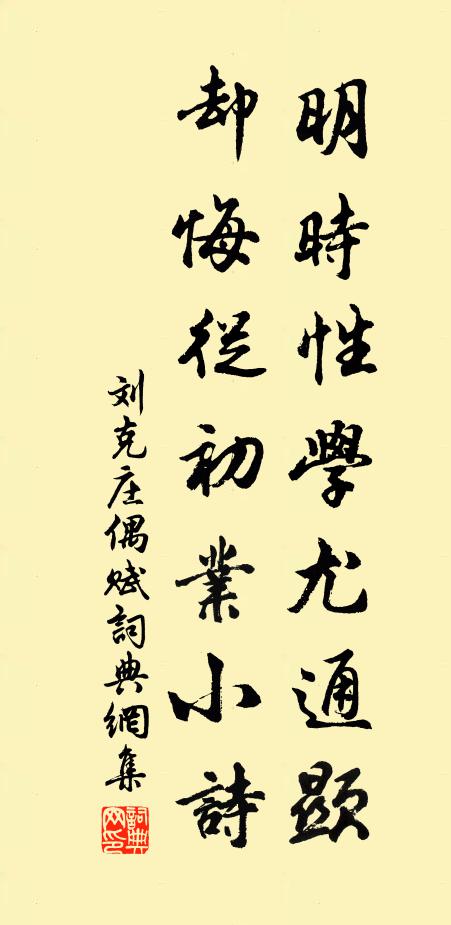 明時性學尤通顯
却悔從初業小詩
刘克庄偶赋詞典網集
詞典网印